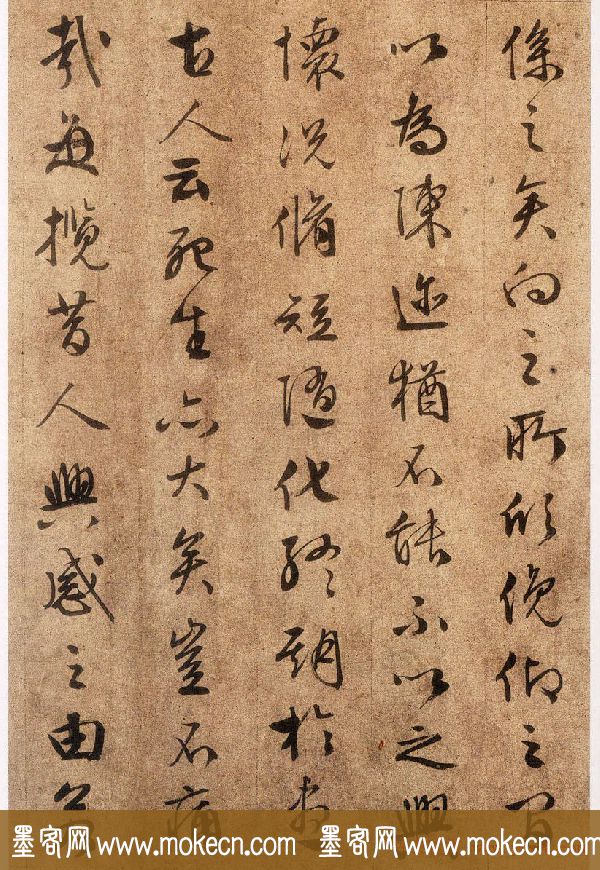 係之矣向之所欣俛仰之間
以為陳迹猶不能不以之興
懷況脩短隨化終期於盡
古人云死生亦大矣豈不痛
哉每攬昔人興感之由若
墨客网 www.mokecn.com 墨客网 www.mokecn.com